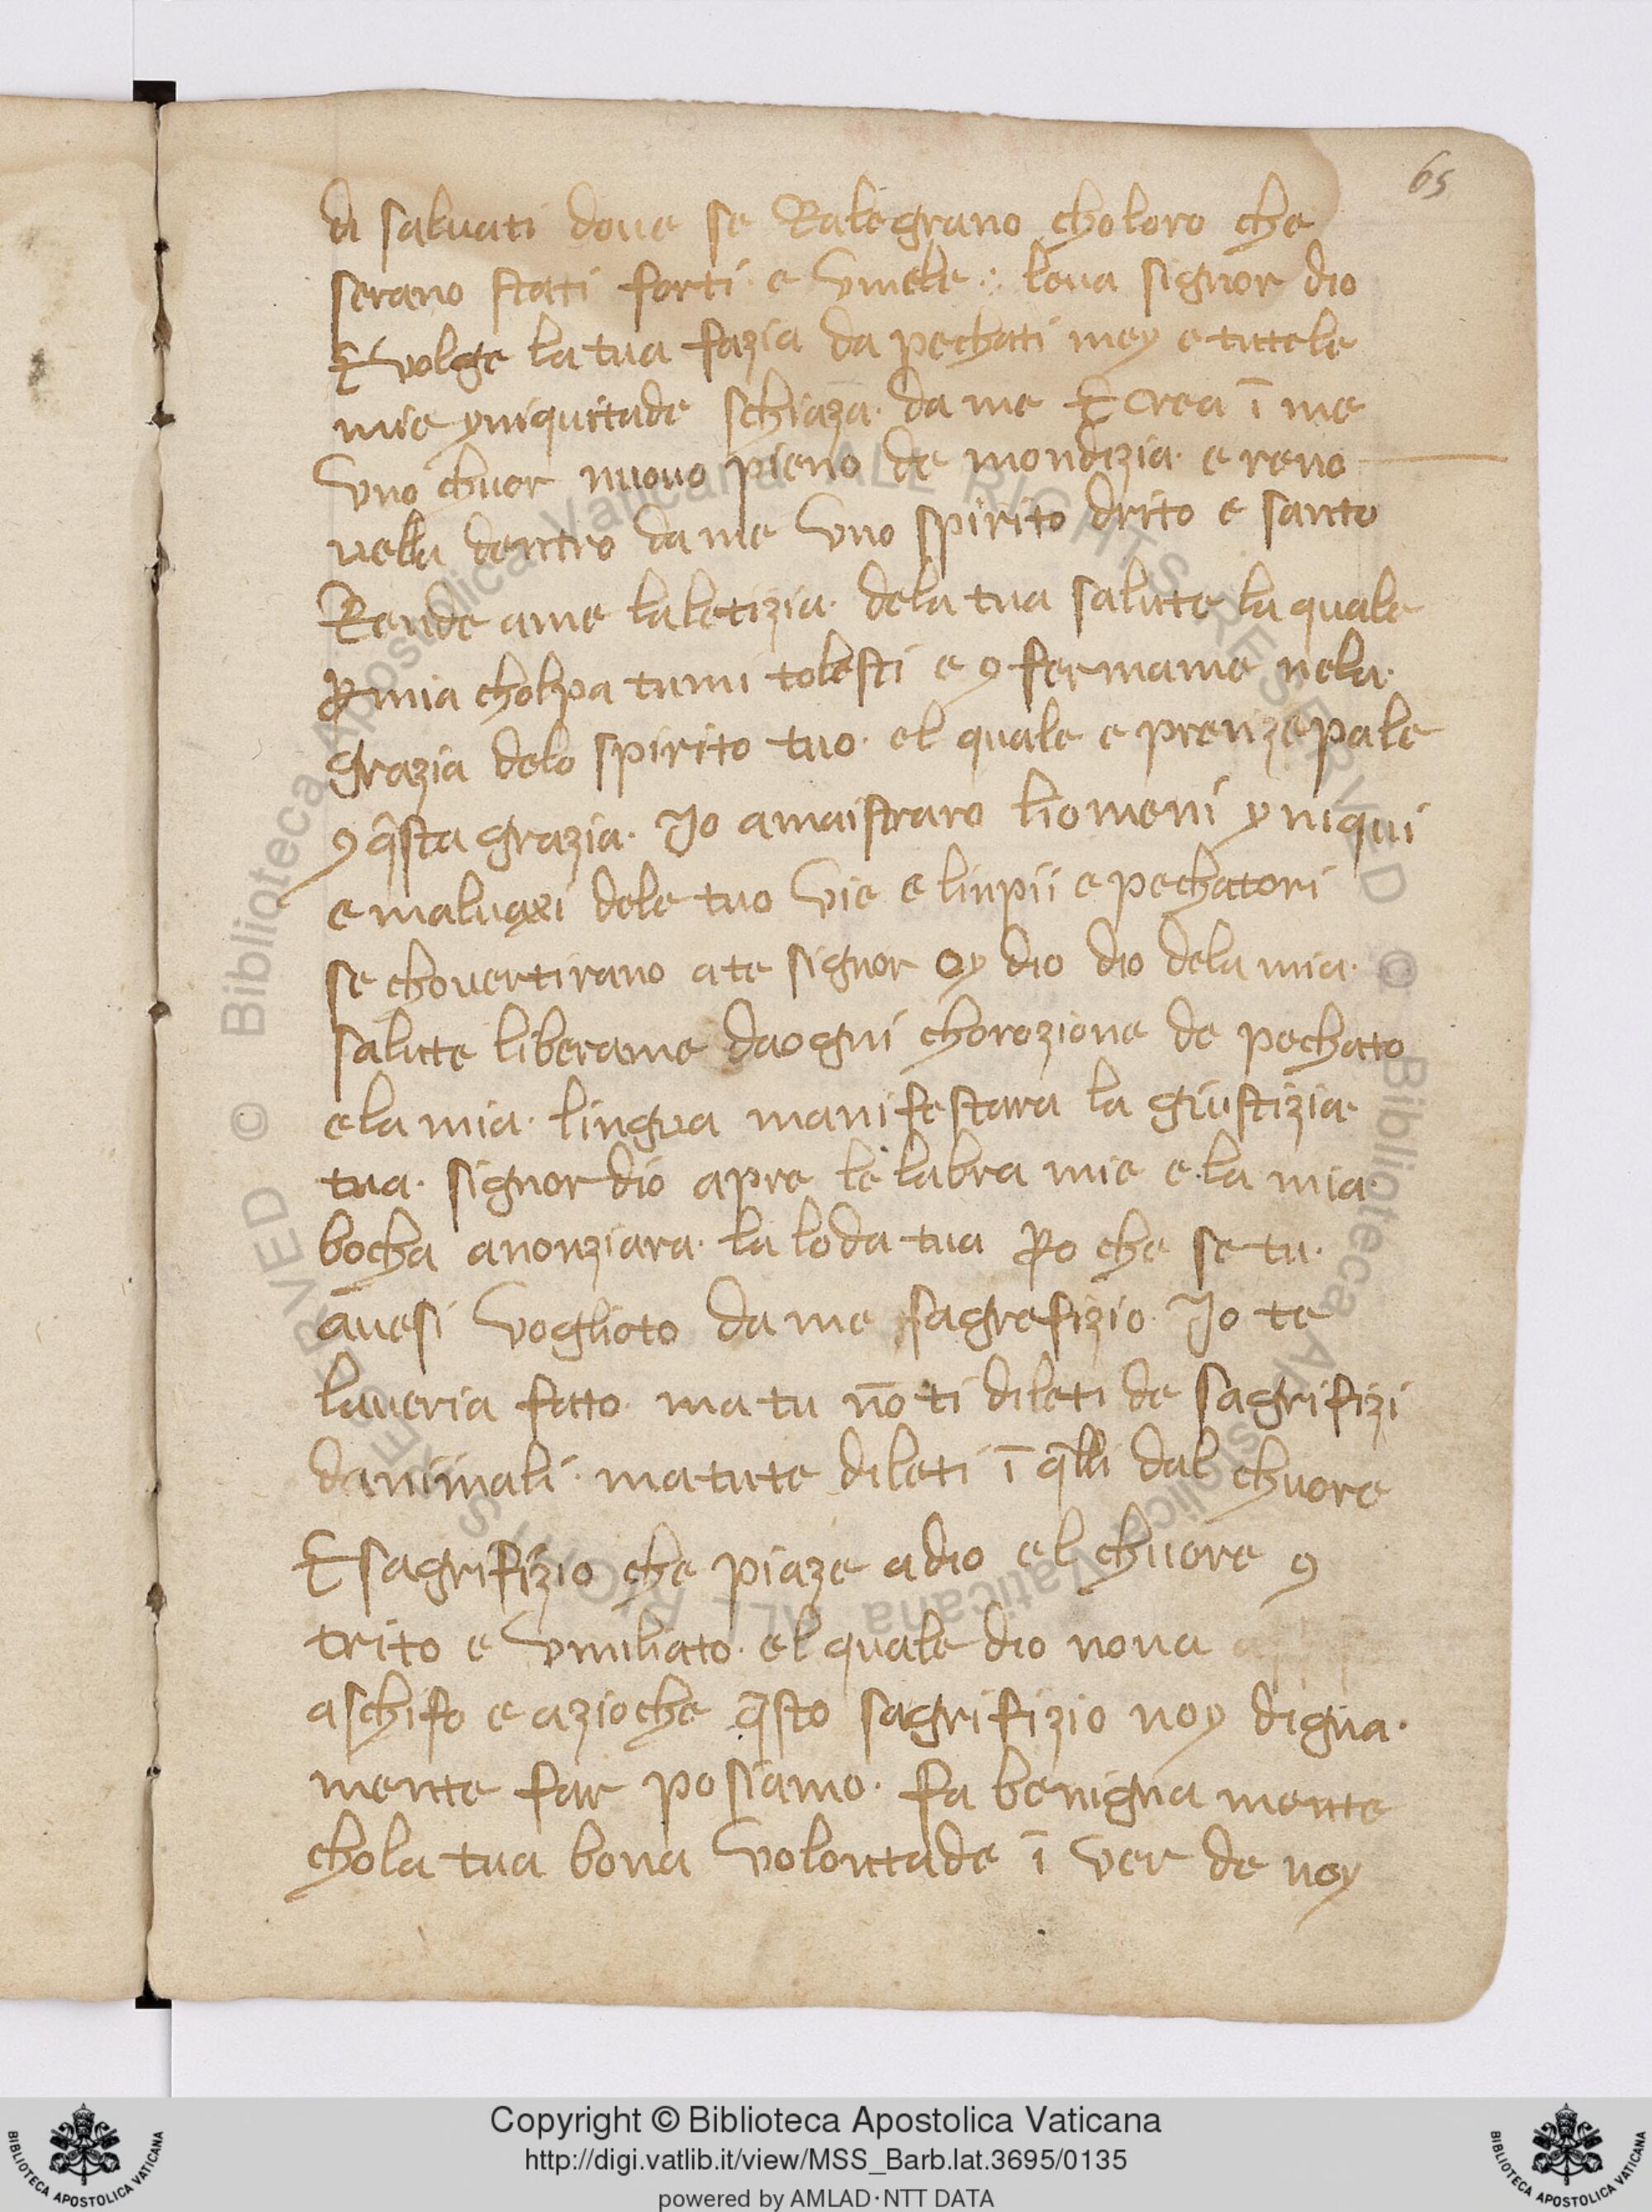 65
di saluati doue se Ralegrano choloro che
serano stati forti e vmele : loua signor dio
E volge la tua fazia da pechati mey e tutele
mie yniquitade schiaza da me E crea ī me
vno chuor nuouo pieno de mondizia e reno
uella dentro da me vno spirito drito e santo
Rende ame la letizia dela tua salute la quale
ꝑ mia cholpa tumi tolesti e ꝯfermame nela
grazia delo spirito tuo el quale e prenzepale
ꝯ q̄sta grazia Jo amaistraro liomeni yniqui
e maluaxi dele tuo vie e linpii e pechatori
se chouertirano a te signor oy dio dio dela mia
salute liberame da ogni chorozione de pechato
e la mia lingua manifestara la giustizia
tua signor dio apre le labra mie e la mia
bocha anonziara la loda tua ꝑo che se tu
auesi voglioto da me sagrefizio Jo te
laueria fatto ma tu nō ti dileti de sagrifizi
danimali ma tute dileti ī q̄lli dal chuore
E sagrifizio che piaze a dio el chuore ꝯ
trito e vmiliato el quale dio nona
aschifo e azioche q̄sto sagrifizio noy digna
mente far posiamo fa benigna mente
chola tua bona volontade ī ver de noy
Copyright © Biblioteca Apostolica Vaticana
http://digi.vatlib.it/view/MSS_Barb.lat.3695/0135
powered by AMLAD·NTT DATA
BIBLIOTECA APOSTOLICA VATICANA
BIBLIOTECA APOSTOLICA VATICANA
© Biblioteca Apostolica Vaticana ALL RIGHTS RESERVED
© Biblioteca Apostolica Vaticana ALL RIGHTS RESERVED